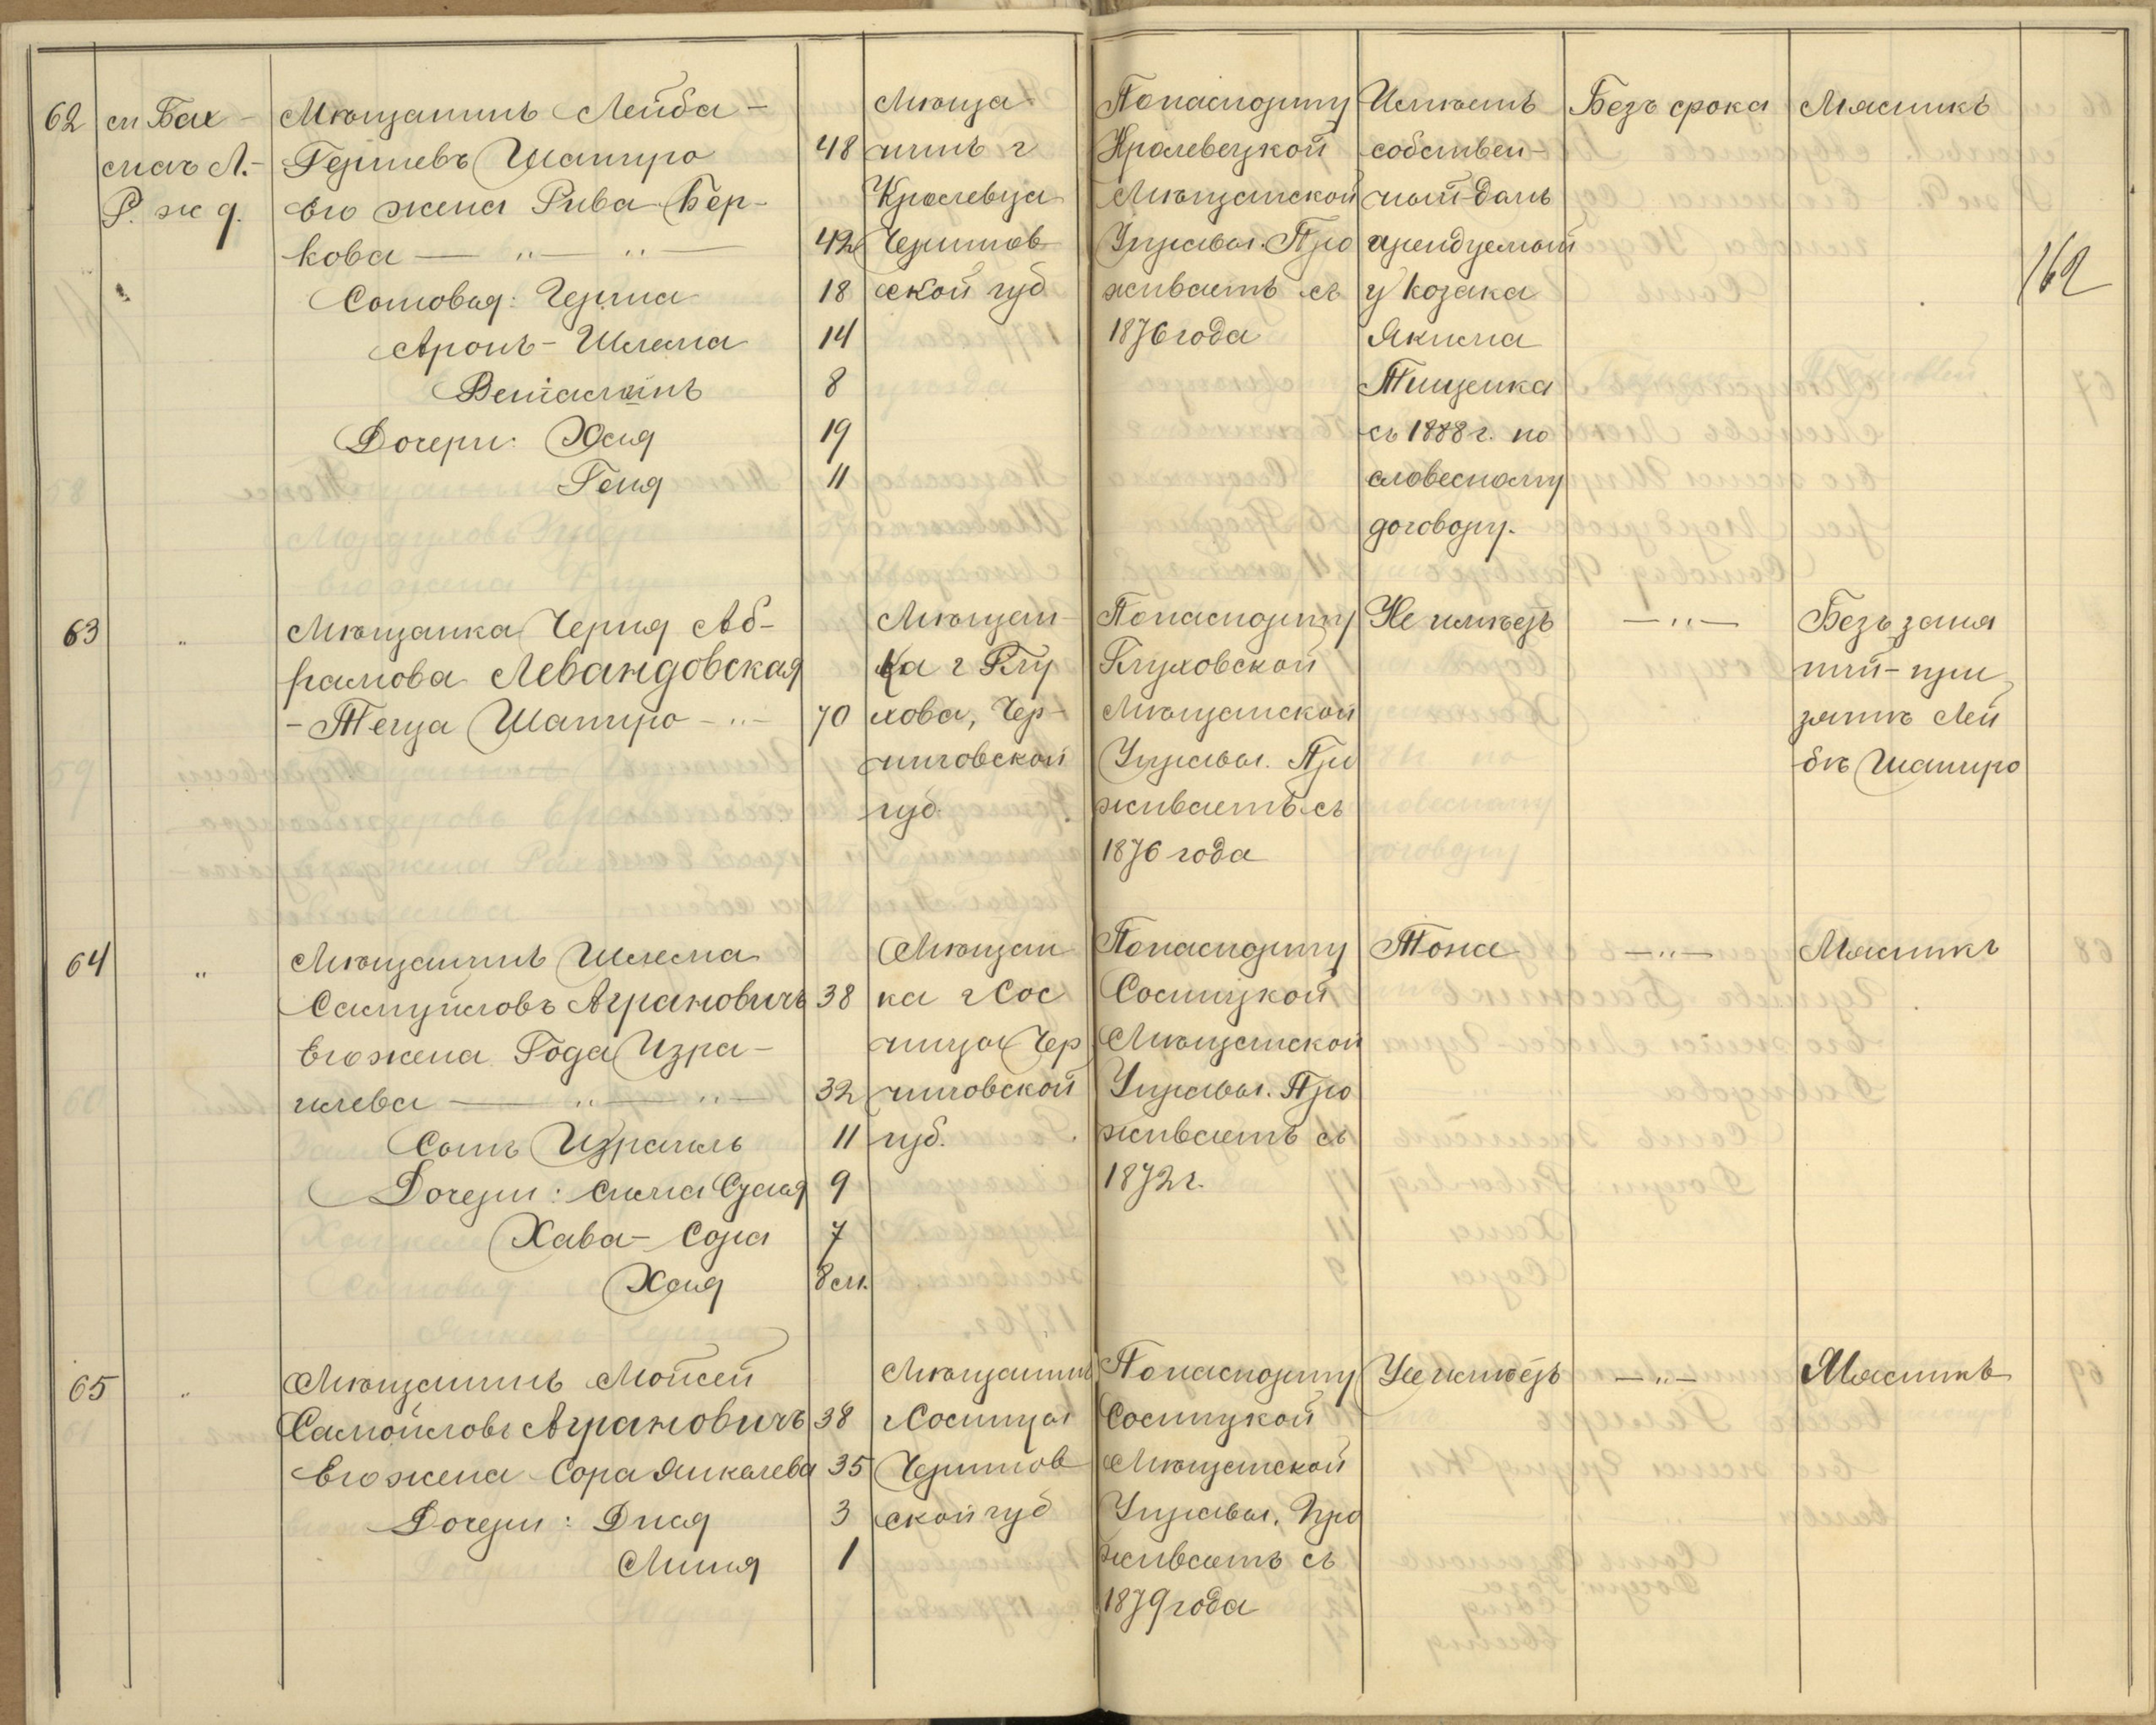 62
ст Бах-
мачъ Л.-
Р. ж д.
Мѣщанинъ Лейба-
Гершевъ Шапиро 48
Его жена Рива Бер-
кова — „ — „ — 42
Сыновья: Герша 18
Аронъ-Шлема 14
Веніаминъ 8
Дочери: Хася 19
Геня 11
Мѣща
нинъ г
Кролевца
Чернигов
ской губ
По паспорту
Кролевецкой
Мѣщанской
Управы. Про
живаетъ съ
1876 года
Имѣетъ
собствен-
ный домъ
арендуемый
у козака
Якима
Тищенка
съ 1888 г. по
словесному
договору.
Безъ срока
Мясникъ
162
63
„
Мѣщанка Черня Аб-
рамова Левандовская
- Теща Шапиро - „ - 70
Мѣщан-
ка г Глу
хова, Чер-
ниговской
губ.
По паспорту
Глуховской
Мѣщанской
Управы. Про
живаетъ съ
1876 года
Не имѣетъ
— „ —
Безъ заня
тий - при
зятѣ Лей
бѣ Шапиро
64
„
Мѣщанинъ Шлема
Самуиловъ Аграновичъ 38
Его жена Года Изра-
илева — „ — „ — 32
Сынъ Израиль 11
Дочери: Сима Суся 9
Хава-Сора 7
Хася 8 м.
Мѣщан
ка г Сос
ницы Чер
ниговской
губ.
По паспорту
Сосницкой
Мѣщанской
Управы. Про
живаетъ съ
1872 г.
Тоже
— „ —
Мясникъ
65
„
Мѣщанинъ Мойсей
Самойловъ Аграновичъ 38
Его жена Сора Янкелева 35
Дочери: Дися 3
Миня 1
Мѣщанинъ
г Сосницы
Чернигов
ской губ
По паспорту
Сосницкой
Мѣщанской
Управы. Про
живаетъ съ
1879 года
Не имѣетъ
— „ —
Мясникъ